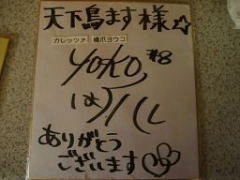 天下鳥ます様☆
ガレッツァ 橋爪ヨウコ
yoko #8
ありがとう
ございます